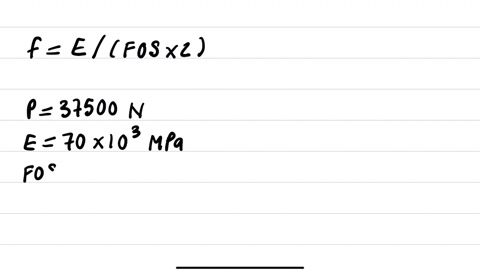 f = E / (FOS × 2)
P = 37500 N
E = 70 × 10³ MPa
FOS